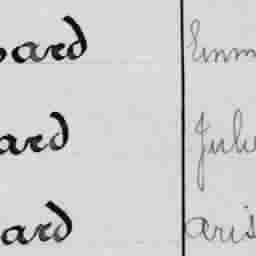 ard Emm
ard Juli
ard aris